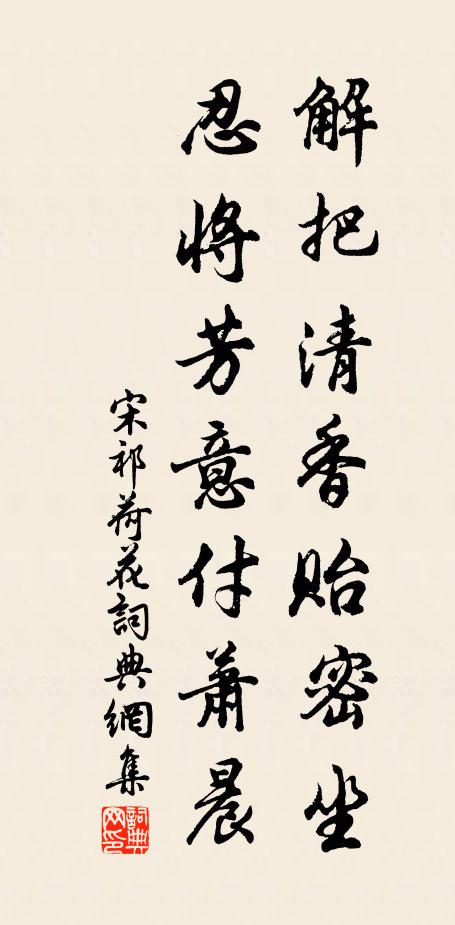 解把清香貽密坐
忍將芳意付蕭晨
宋祁荷花詞典網集
詞典網印